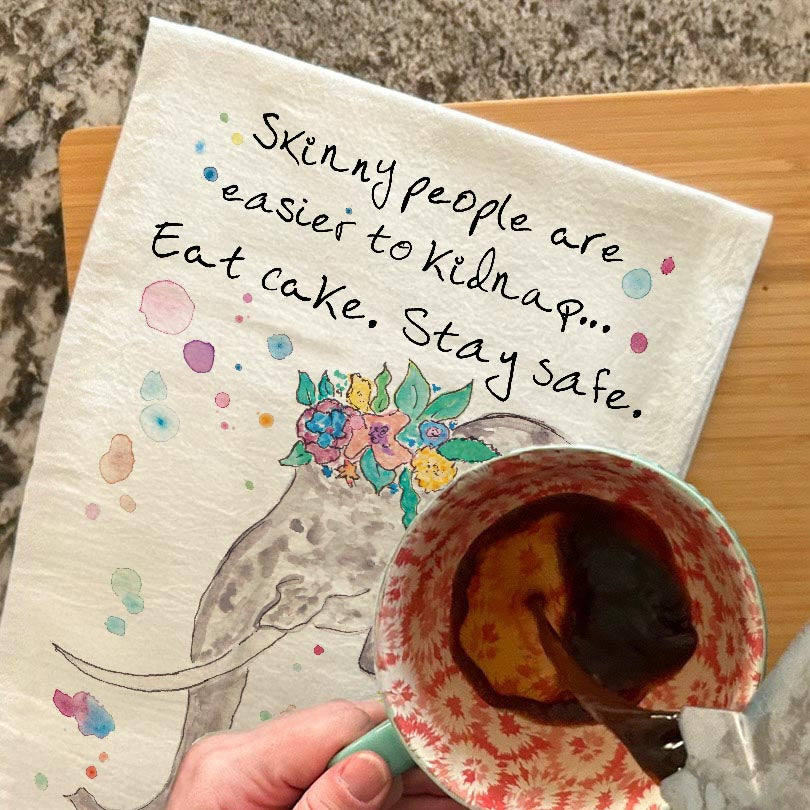 Skinny people are
easier to kidnap...
Eat cake. Stay safe.